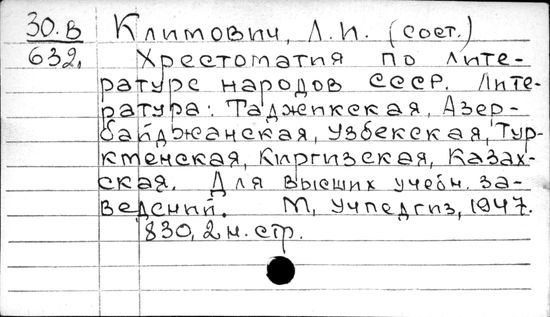 30.В Климович, Л.И. (сост.)
632. Хрестоматия по лите-
ратуре народов СССР. Лите-
ратура: Таджикская, Азер-
байджанская, Узбекская, Тур-
кменская, Киргизская, Казах-
ская. Для высших учебн. за-
ведений. М, Учпедгиз, 1947.
830, 2 н. стр.